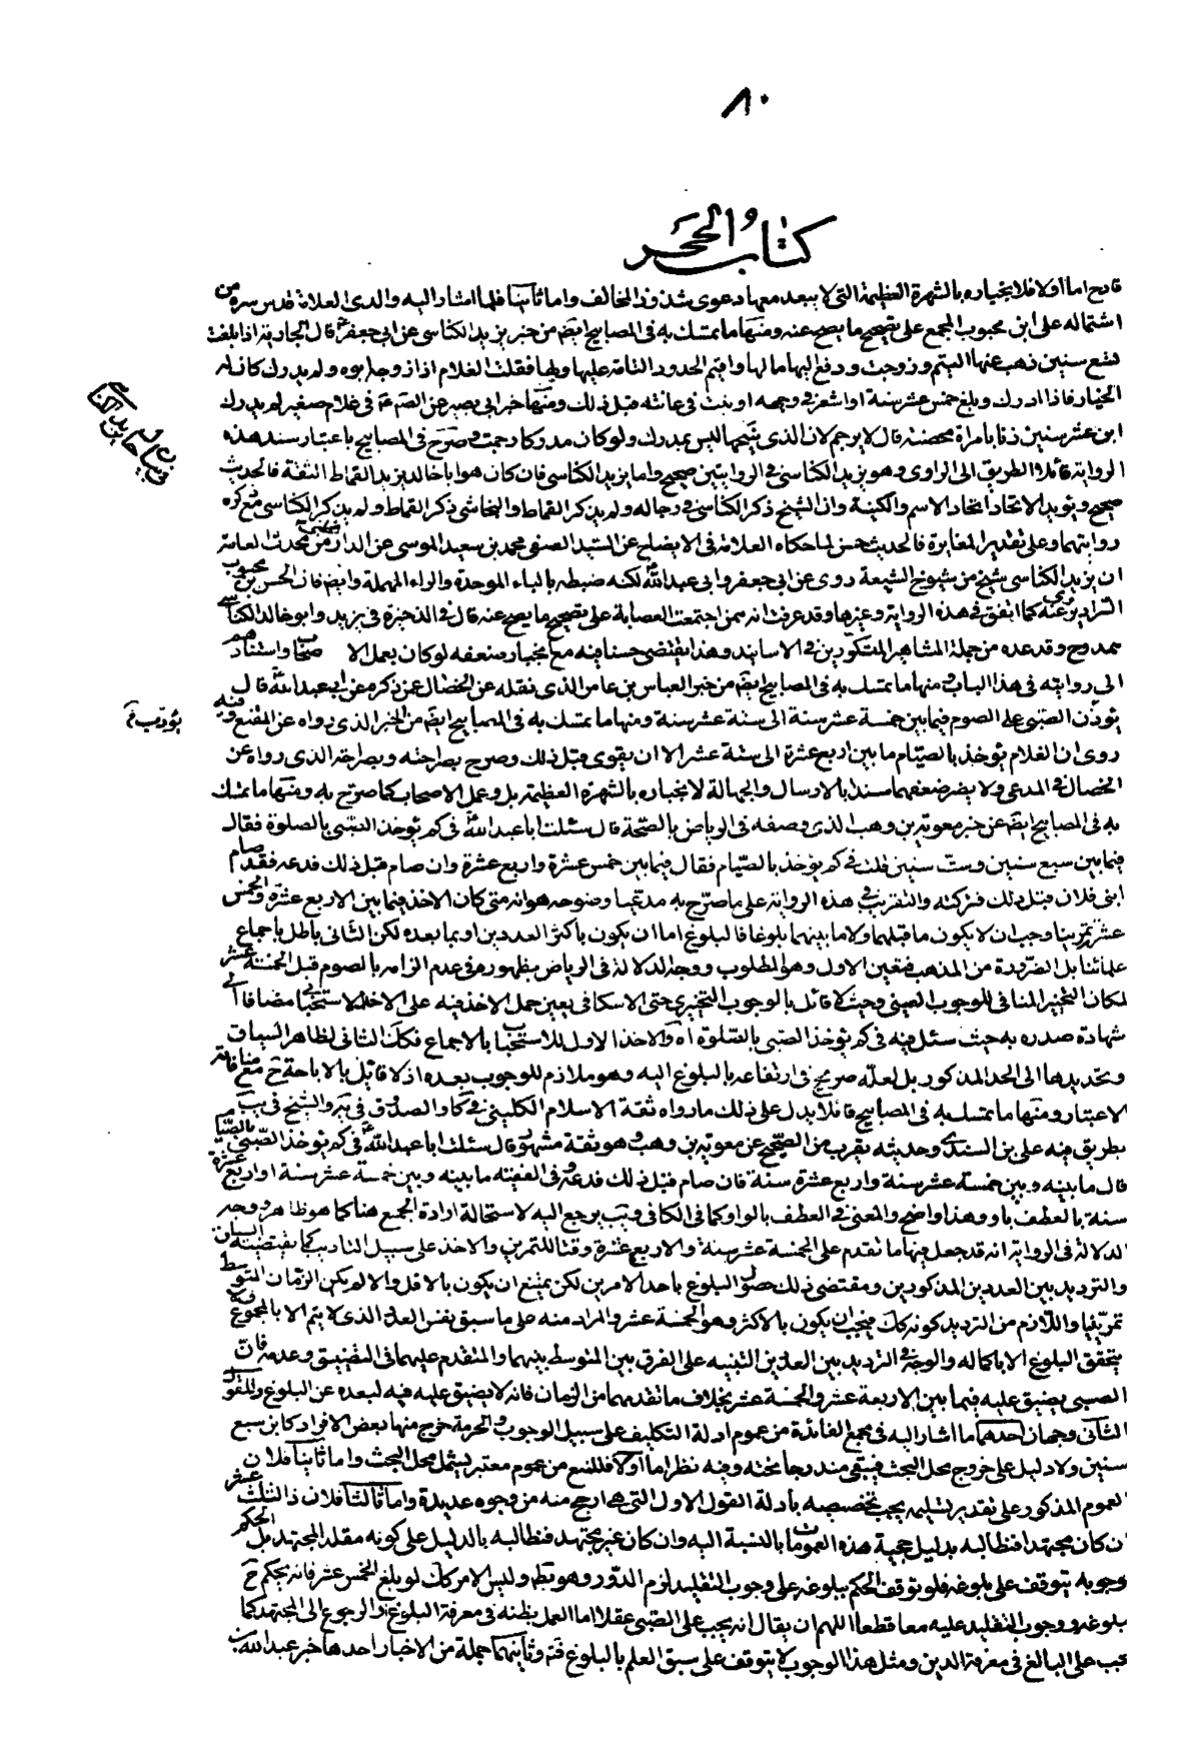 ٨٠
كتاب الحجر
قادح اما اولا فلانجباره بالشهرة العظيمة التى لا يبعد معها دعوى شذوذ المخالف واما ثانيا فلما اشار اليه والدى العلامة قدس سره من
اشتماله على ابن محبوب المجمع على تصحيح ما يصح عنه ومنها ما تمسك به فى المصابيح ايضم من خبر يزيد الكناسى عن ابى جعفر ع قال الجارية اذا بلغت
تسع سنين ذهب عنها اليتم وزوجت ودفع اليها مالها واقيم الحدود التامة عليها ولها فقلت الغلام اذا زوجه ابوه ولم يدرك كان له
الخيار فاذا ادرك وبلغ خمس عشر سنة او اشعر فى وجهه او نبت فى عانته قبل ذلك ومنها خبر ابى بصير عن الصم ع فى غلام صغير لم يدرك
ابن عشر سنين زنا بامراة محصنة قال لا يرجم لان الذى نكحها ليس بمدرك ولو كان مدركا رجمت وصرح فى المصابيح باعتبار سند هذه
الرواية قائلا الطريق الى الراوى وهو يزيد الكناسى فى الروايتين صحيح واما يزيد الكناسى فان كان هو ابا خالد يزيد القماط الثقة فالحديث
صحيح ويؤيد الاتحاد اتحاد الاسم والكنية وان الشيخ ذكر الكناسى فى رجاله ولم يذكر القماط والنجاشى ذكر القماط ولم يذكر الكناسى مع كثرة
روايتهما وعلى تقدير المغايرة فالحديث حسن لما حكاه العلامة فى الايضاح عن السيد الصفى محمد بن سعيد الموسى عن الدارقطنى من محدث العامة
ان يزيد الكناسى شيخ من شيوخ الشيعة روى عن ابى جعفر وابى عبد الله ع لكنه ضبطه بالباء الموحدة والراء المهملة وايضم فان الحسن بن محبوب
السراد يروى عنه كما اتفق فى هذه الرواية وغيرها وقد عرفت انه ممن اجتمعت العصابة على تصحيح ما يصح عنه قال فى الذخيرة فى بريد وابو خالد الكناسى
ممدوح وقد عده من جملة المشاهير المتكررين فى الاسانيد وهذا يقتضى حسنا فيه مع انجبار ضعفه لو كان بعمل الاصحاب واستنادهم
الى روايته فى هذا الباب ومنها ما تمسك به فى المصابيح ايضم من خبر العباس بن عامر الذى نقله عن الخصال عمن ذكره عن ابى عبد الله ع قال
يؤدب الصبى على الصوم فيما بين خمسة عشر سنة الى ستة عشر سنة ومنها ما تمسك به فى المصابيح ايضم من الخبر الذى رواه عن المقنع وفيه
روى ان الغلام يؤخذ بالصيام ما بين اربع عشرة الى ستة عشر الا ان يقوى قبل ذلك وصرح بصراحته وبصراحة الذى رواه عن
الخصال فى المدعى ولا يضر ضعفهما سندا بالارسال والجهالة لانجباره بالشهرة العظيمة بل وعمل الاصحاب كما صرح به ومنها ما تمسك
به فى المصابيح ايضم عن خبر معوية بن وهب الذى وصفه فى الرياض بالصحة قال سئلت ابا عبد الله ع فى كم يؤخذ الصبى بالصلوة فقال
فيما بين سبع سنين وست سنين قلت فى كم يؤخذ بالصيام فقال فيما بين خمس عشرة واربع عشرة وان صام قبل ذلك فدعه فقد صام
ابنى فلان قبل ذلك فتركته والتقريب فى هذه الرواية على ما صرح به مدعيها وضوحه هو انه متى كان الاخذ فيما بين الاربع عشرة والخمس
عشر تمرينا وجب ان لا يكون ما قبلهما ولا ما بينهما بلوغا فالبلوغ اما ان يكون باكثر العددين او بما بعده لكن الثانى باطل باجماع
علمائنا بل الضرورة من المذهب فتعين الاول وهو المطلوب ووجه الدلالة فى الرياض بظهورها فى عدم الزامه بالصوم قبل الخمسة عشر
لمكان التخيير المنافى للوجوب العينى وحيث لا قائل بالوجوب التخييرى حتى الاسكافى يعين حمل الاخذ فيه على الاخذ الاستحبابى مضافا الى
شهادة صدره به حيث سئل فيه فى كم يؤخذ الصبى بالصلوة اه والاخذ الاول للاستحباب بالاجماع فكك الثانى لظاهر السياق
وتحديدها الى الحد المذكور بل لعله صريح فى ارتفاعه بالبلوغ اليه وهو ملازم للوجوب بعده اذ لا قائل بالاباحة ح مع منافاته
الاعتبار ومنها ما تمسك به فى المصابيح قائلا يدل على ذلك ما رواه ثقة الاسلام الكلينى فى كا والصدوق فى يه والشيخ فى يب
بطريق فيه على بن السندى وحديثه يقرب من الصحيح عن معوية بن وهب وهو ثقة مشهور قال سئلت ابا عبد الله ع فى كم يؤخذ الصبى بالصيام
قال ما بينه وبين خمسة عشر سنة واربع عشرة سنة فان صام قبل ذلك فدعه وفى الفقيه ما بينه وبين خمسة عشر سنة او اربع عشرة
سنة بالعطف باو وهذا واضح والمعنى فى العطف بالواو كما فى الكافى ويب يرجع اليه لاستحالة ارادة الجمع هنا كما هو ظاهر ووجه
الدلالة فى الرواية انه قد جعل فيها ما تقدم على الخمسة عشر سنة والاربع عشرة وقتا للتمرين والاخذ على سبيل التاديب كما يقتضيه السياق
والترديد بين العددين المذكورين ومقتضى ذلك حصول البلوغ باحد الامرين لكن يمتنع ان يكون بالاقل والا لم يكن الزمان المتوسط
تمرينيا واللازم من الترديد كونه كك فيجب ان يكون بالاكثر وهو الخمسة عشر والمراد منه على ما سبق نفس العدد الذى لا يتم الا بالمجموع فلا
يتحقق البلوغ الا باكماله والوجه فى الترديد بين العددين التنبيه على الفرق بين المتوسط بينهما والمتقدم عليهما فى التضييق وعدمه فان
الصبى يضيق عليه فيما بين الاربعة عشر والخمسة عشر بخلاف ما تقدمهما من الزمان فانه لا يضيق عليه فيه لبعده عن البلوغ وللقول
الثانى وجهان احدهما ما اشار اليه فى مجمع الفائدة من عموم ادلة التكليف على سبيل الوجوب والحرمة خرج منها بعض الافراد كابن سبع
سنين ولا دليل على خروج محل البحث فيبقى مندرجا تحته وفيه نظر اما اولا فللمنع من عموم معتبر يشمل محل البحث واما ثانيا فلان
العموم المذكور على تقدير تسليمه يجب تخصيصه بادلة القول الاول التى هى ارجح منه من وجوه عديدة واما ثالثا فلان ذا الثلث عشر
ان كان مجتهدا فنطالبه بدليل حجية هذه العمومات بالنسبة اليه وان كان غير مجتهد فنطالبه بالدليل على كونه مقلد المجتهد بل الحكم
وجوبه يتوقف على بلوغه فلو توقف الحكم ببلوغه على وجوب التقليد لزم الدور وهو بط وليس الامر كك لو بلغ الخمس عشر فانه يحكم ح
بلوغه ووجوب التقليد عليه معا قطعا اللهم ان يقال انه يجب على الصبى عقلا اما العمل بظنه فى معرفة البلوغ او الرجوع الى المجتهد كما
يجب على البالغ فى معرفة الدين ومثل هذا الوجوب لا يتوقف على سبق العلم بالبلوغ فتم وثانيهما جملة من الاخبار احدها خبر عبد الله بن
يؤدب